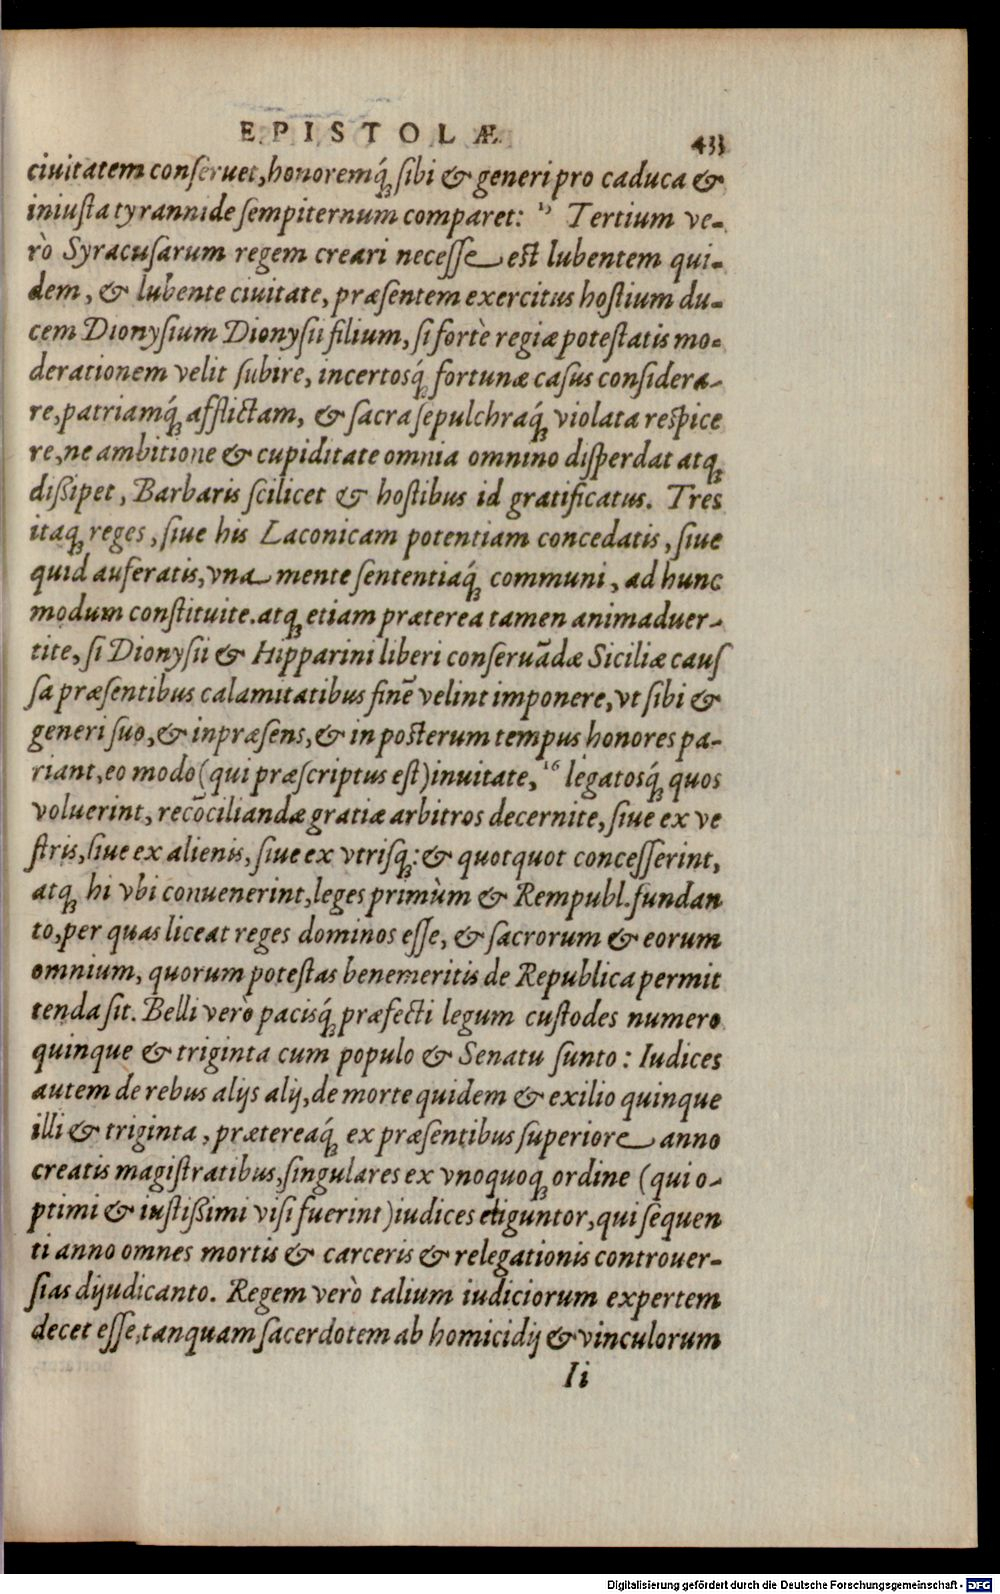 EPISTOLÆ 433
ciuitatem conſeruet, honoremq́ꝫ ſibi & generi pro caduca &
iniuſta tyrannide ſempiternum comparet: ¹⁵ Tertium ve-
rò Syracuſarum regem creari neceſſe eſt lubentem qui-
dem, & lubente ciuitate, præſentem exercitus hoſtium du-
cem Dionyſium Dionyſii filium, ſi fortè regiæ poteſtatis mo-
derationem velit ſubire, incertosq́ꝫ fortunæ caſus conſidera-
re, patriamq́ꝫ afflictam, & ſacra ſepulchraq́ꝫ violata reſpice
re, ne ambitione & cupiditate omnia omnino diſperdat atqꝫ
diſsipet, Barbaris ſcilicet & hoſtibus id gratificatus. Tres
itaqꝫ reges, ſiue his Laconicam potentiam concedatis, ſiue
quid auferatis, vna mente ſententiaq́ꝫ communi, ad hunc
modum conſtituite. atqꝫ etiam præterea tamen animaduer-
tite, ſi Dionyſii & Hipparini liberi conſeruãdæ Siciliæ cauſ
ſa præſentibus calamitatibus finẽ velint imponere, vt ſibi &
generi ſuo, & inpræſens, & in poſterum tempus honores pa-
riant, eo modo (qui præſcriptus eſt) inuitate, ¹⁶ legatosq́ꝫ quos
voluerint, recõciliandæ gratiæ arbitros decernite, ſiue ex ve
ſtris, ſiue ex alienis, ſiue ex vtriſqꝫ: & quotquot conceſſerint,
atqꝫ hi vbi conuenerint, leges primùm & Rempubl. fundan
to, per quas liceat reges dominos eſſe, & ſacrorum & eorum
omnium, quorum poteſtas benemeritis de Republica permit
tenda ſit. Belli verò pacisq́ꝫ præfecti legum cuſtodes numero
quinque & triginta cum populo & Senatu ſunto: Iudices
autem de rebus alijs alij, de morte quidem & exilio quinque
illi & triginta, prætereaq́ꝫ ex præſentibus ſuperiore anno
creatis magiſtratibus, ſingulares ex vnoquoqꝫ ordine (qui o-
ptimi & iuſtiſsimi viſi fuerint) iudices eliguntor, qui ſequen
ti anno omnes mortis & carceris & relegationis controuer-
ſias dijudicanto. Regem verò talium iudiciorum expertem
decet eſſe, tanquam ſacerdotem ab homicidij & vinculorum
Ii
Digitalisierung gefördert durch die Deutsche Forschungsgemeinschaft - DFG